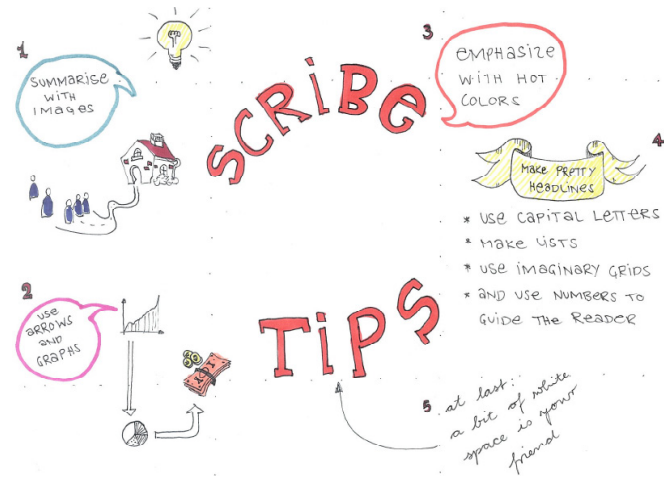 SCRIBE
TIPS
1
SUMMARISE
WITH
IMAGES
2
USE
ARROWS
AND
GRAPHS
3
EMPHASIZE
WITH HOT
COLORS
4
MAKE PRETTY
HEADLINES
* USE CAPITAL LETTERS
* MAKE LISTS
* USE IMAGINARY GRIDS
* AND USE NUMBERS TO
GUIDE THE READER
5
at last:
a bit of white
space is your
friend